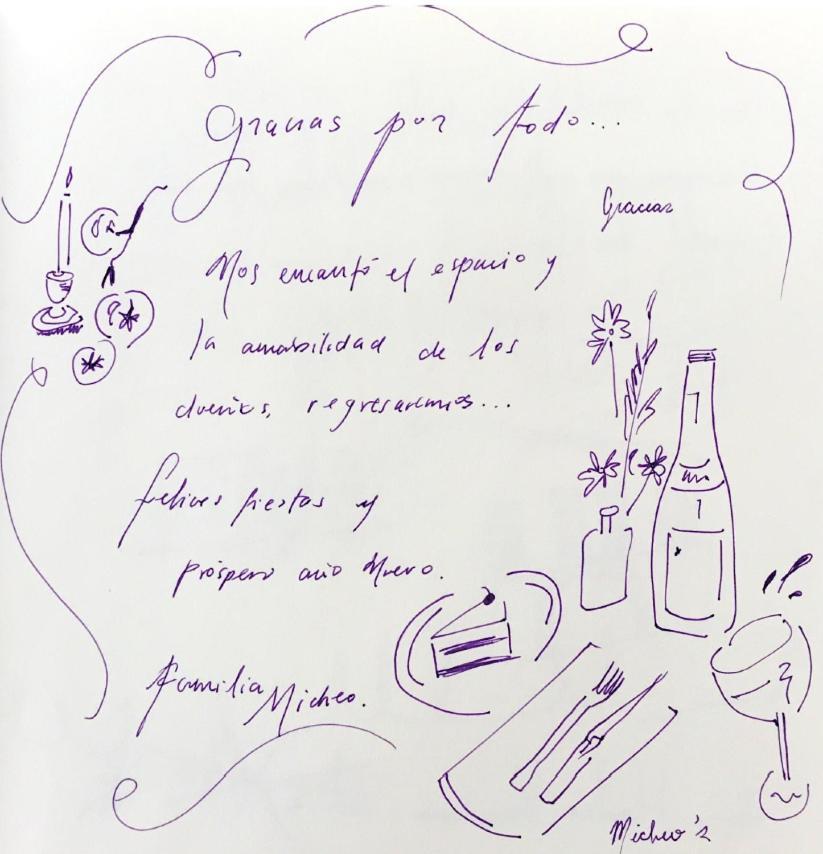 Gracias por todo...
Gracias
Nos encantó el espacio y
la amabilidad de los
dueños, regresaremos...
Felices fiestas y
próspero año Nuevo.
Familia Micheo.
Micheo's